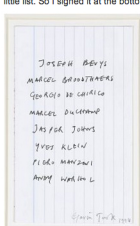 little list. So I signed it at the botto
JOSEPH BEUYS
MARCEL BROODTHAERS
GEORGIO DE CHIRICO
MARCEL DUCHAMP
JASPER JOHNS
YVES KLEIN
PIERO MANZONI
ANDY WARHOL